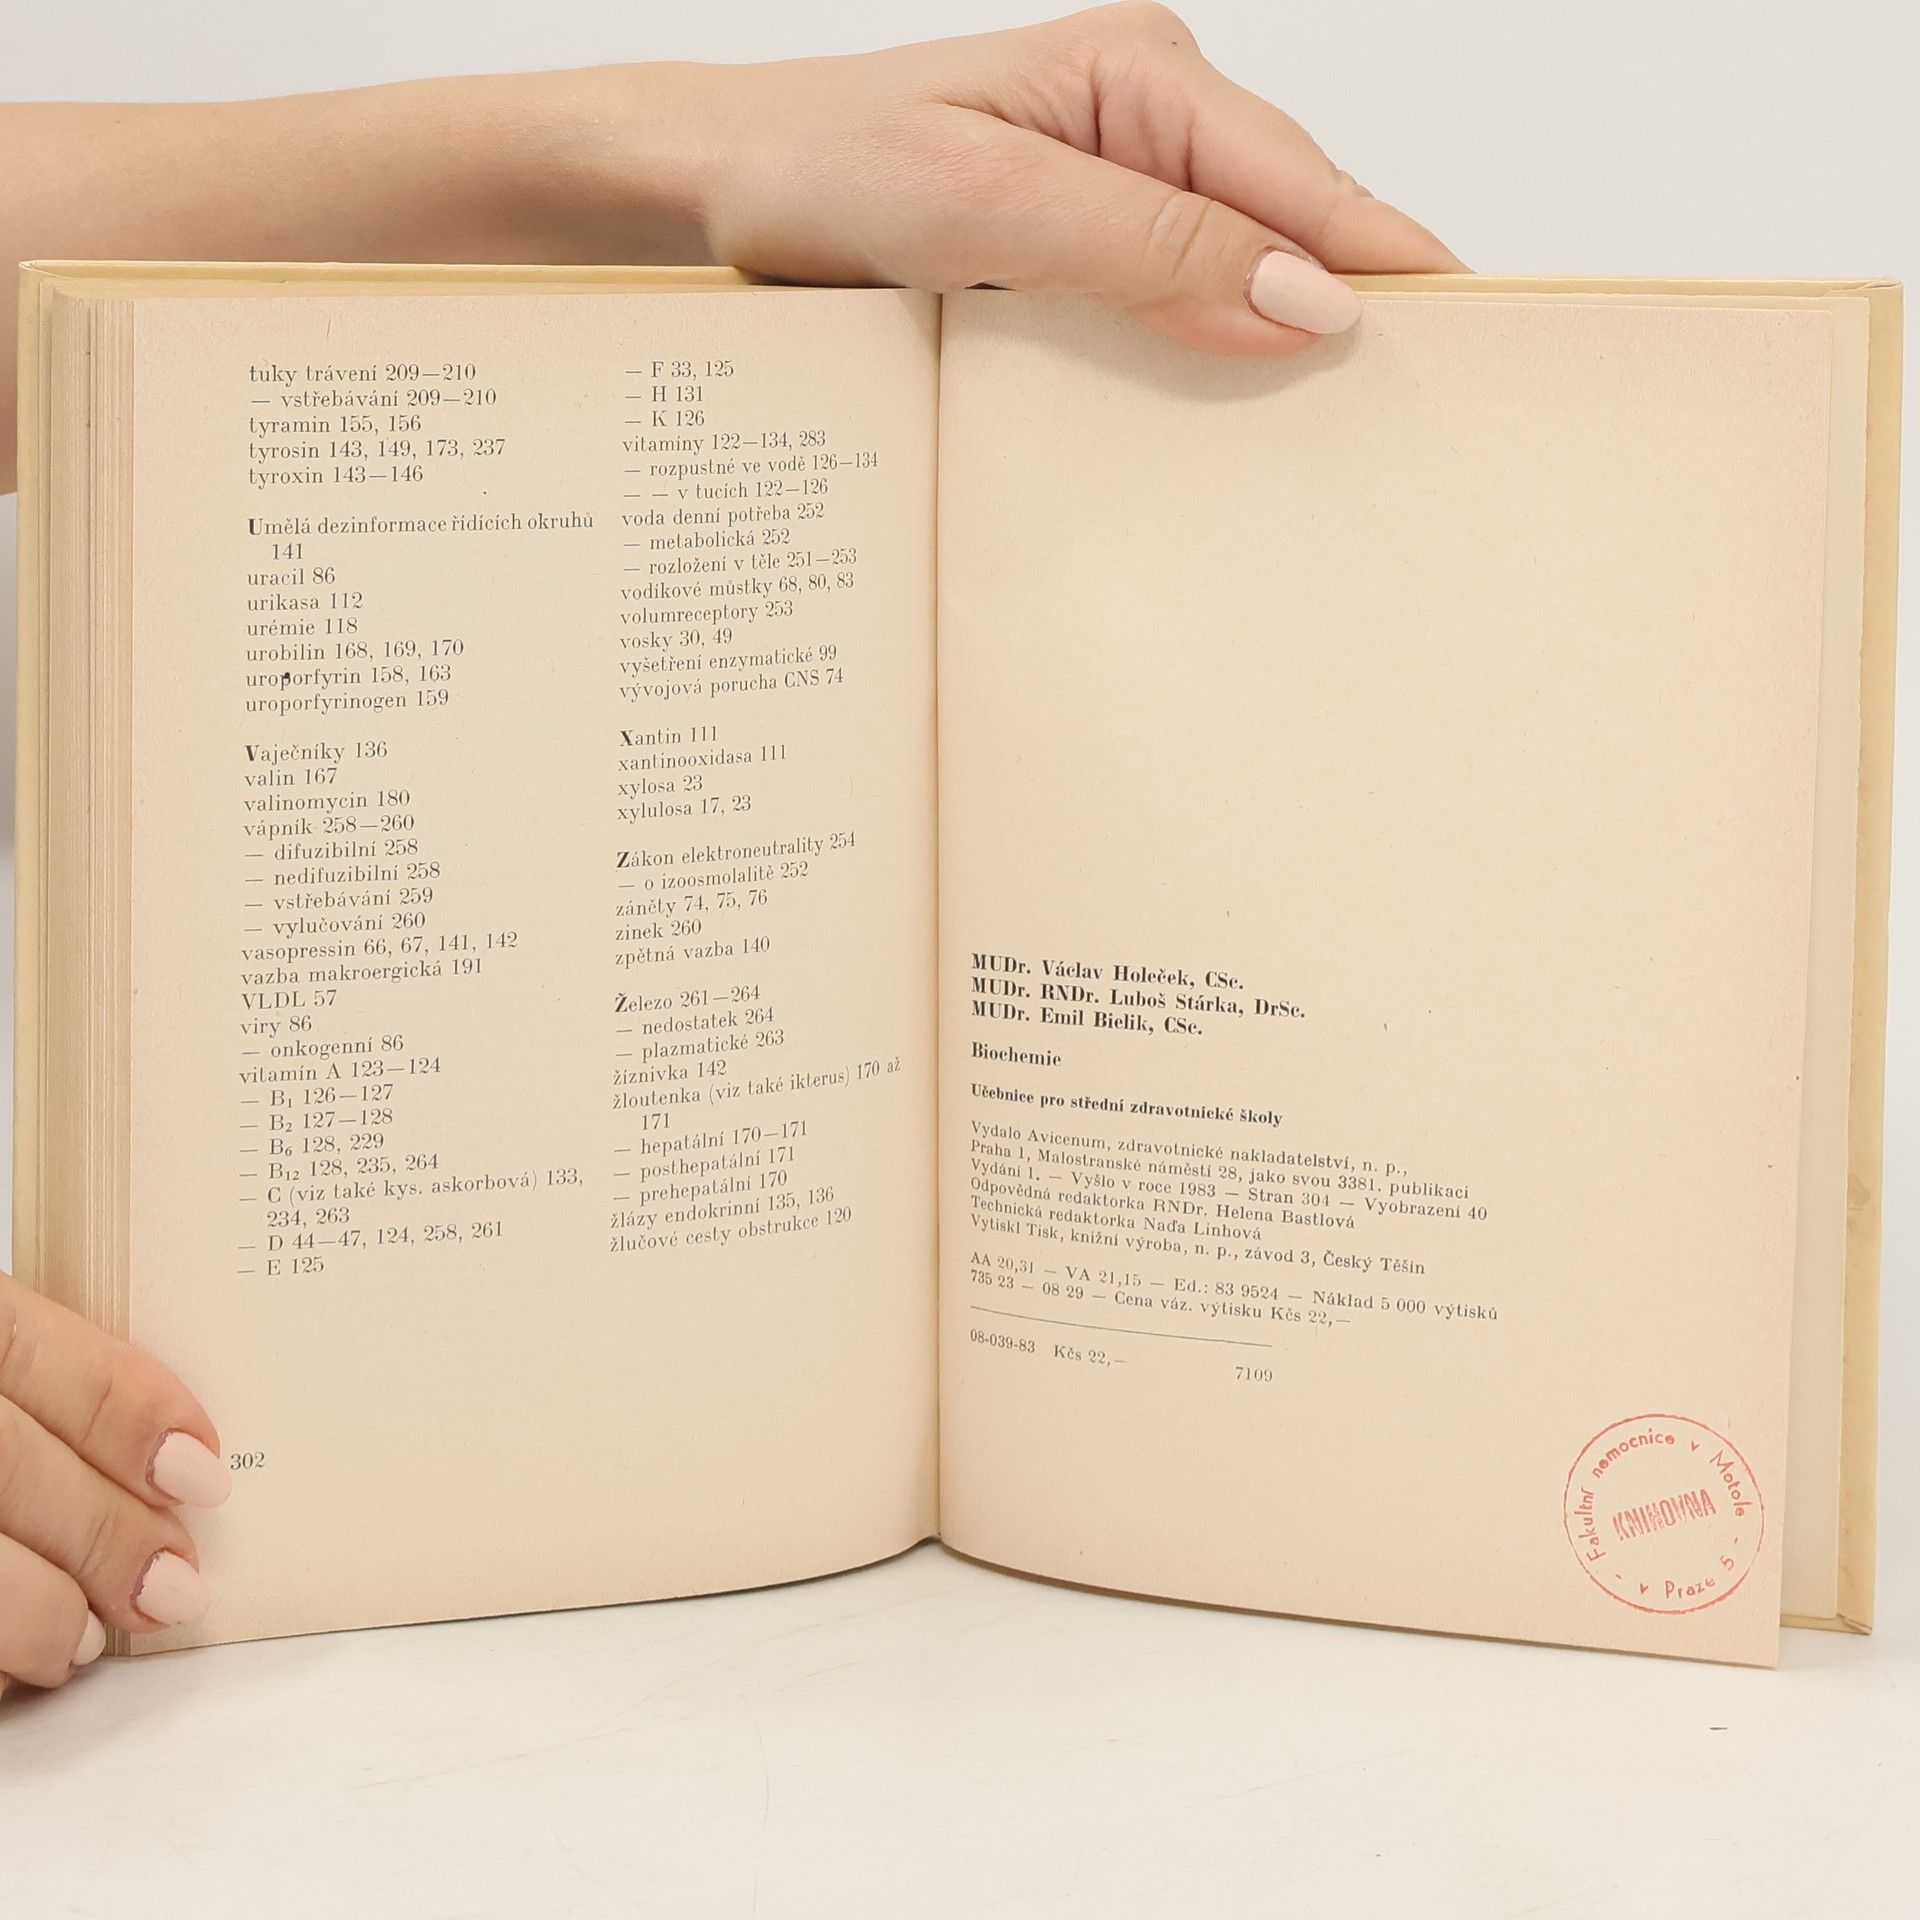 tuky trávení 209—210
— vstřebávání 209—210
tyramin 155, 156
tyrosin 143, 149, 173, 237
tyroxin 143—146
Umělá dezinformace řídících okruhů
141
uracil 86
urikasa 112
urémie 118
urobilin 168, 169, 170
uroporfyrin 158, 163
uroporfyrinogen 159
Vaječníky 136
valin 167
valinomycin 180
vápník 258—260
— difuzibilní 258
— nedifuzibilní 258
— vstřebávání 259
— vylučování 260
vasopressin 66, 67, 141, 142
vazba makroergická 191
VLDL 57
viry 86
— onkogenní 86
vitamín A 123—124
— B₁ 126—127
— B₂ 127—128
— B₆ 128, 229
— B₁₂ 128, 235, 264
— C (viz také kys. askorbová) 133,
234, 263
— D 44—47, 124, 258, 261
— E 125
302
— F 33, 125
— H 131
— K 126
vitamíny 122—134, 283
— rozpustné ve vodě 126—134
— — v tucích 122—126
voda denní potřeba 252
— metabolická 252
— rozložení v těle 251—253
vodíkové můstky 68, 80, 83
volumreceptory 253
vosky 30, 49
vyšetření enzymatické 99
vývojová porucha CNS 74
Xantin 111
xantinooxidasa 111
xylosa 23
xylulosa 17, 23
Zákon elektroneutrality 254
— o izoosmolalitě 252
záněty 74, 75, 76
zinek 260
zpětná vazba 140
Železo 261—264
— nedostatek 264
— plazmatické 263
žíznivka 142
žloutenka (viz také ikterus) 170 až
171
— hepatální 170—171
— posthepatální 171
— prehepatální 170
žlázy endokrinní 135, 136
žlučové cesty obstrukce 120
MUDr. Václav Holeček, CSc.
MUDr. RNDr. Luboš Stárka, DrSc.
MUDr. Emil Bielik, CSc.
Biochemie
Učebnice pro střední zdravotnické školy
Vydalo Avicenum, zdravotnické nakladatelství, n. p.,
Praha 1, Malostranské náměstí 28, jako svou 3381. publikaci
Vydání 1. — Vyšlo v roce 1983 — Stran 304 — Vyobrazení 40
Odpovědná redaktorka RNDr. Helena Bastlová
Technická redaktorka Naďa Linhová
Vytiskl Tisk, knižní výroba, n. p., závod 3, Český Těšín
AA 20,31 — VA 21,15 — Ed.: 83 9524 — Náklad 5 000 výtisků
735 23 — 08 29 — Cena váz. výtisku Kčs 22,—
08-039-83 Kčs 22,—
7109
Fakultní nemocnice v Motole
KNIHOVNA
- v Praze 5 -